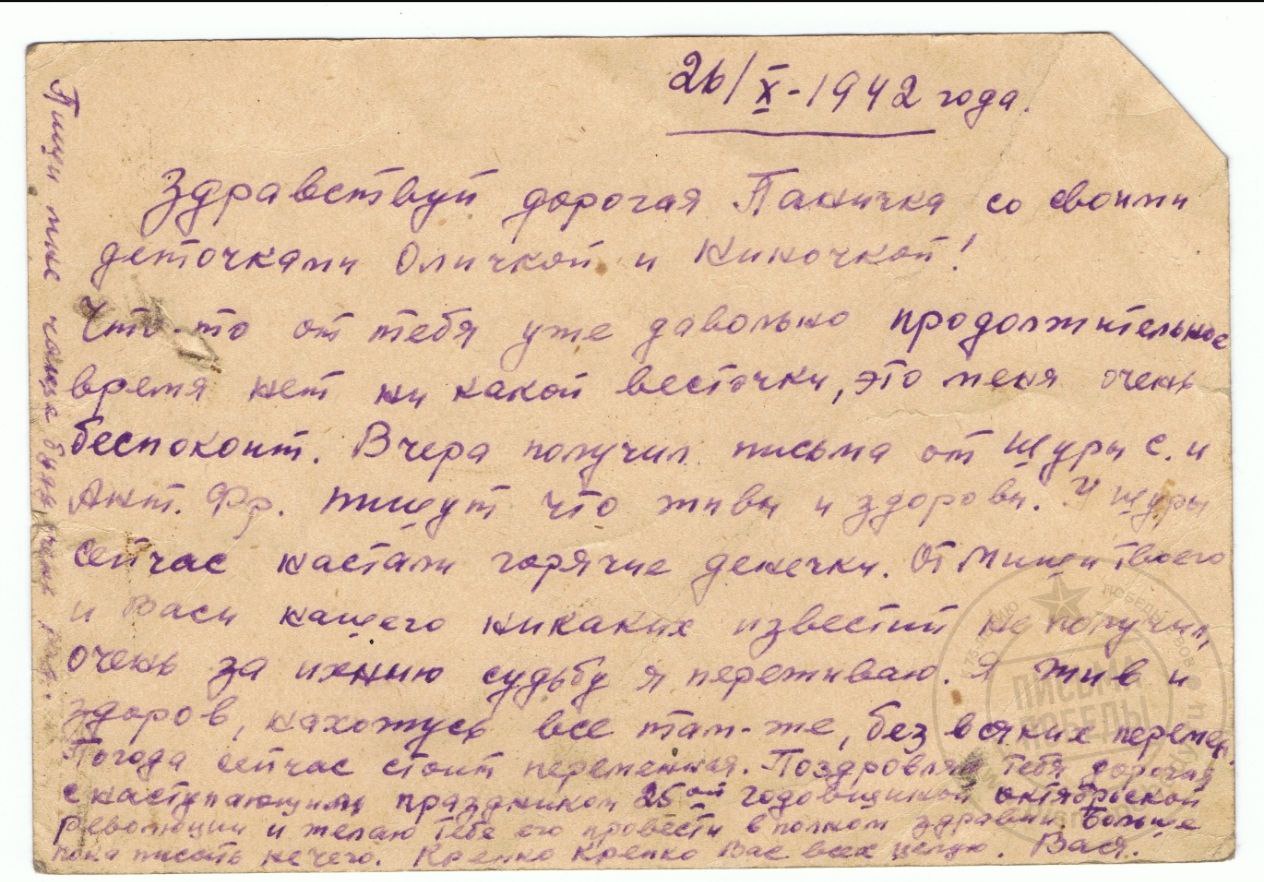 26/X-1942 года.
Здравствуй дорогая Паничка со своими
деточками Оличкой и Ниночкой!
Что-то от тебя уже давольно продолжительное
время нет ни какой весточки, это меня очень
беспокоит. Вчера получил письма от Шуры С. и
Ант. Фр. пишут что живы и здоровы. У Шуры
сейчас настали горячие денечки. От Миши твоего
и Васи нашего никаких известий не получил,
очень за ихнию судьбу я переживаю. Я жив и
здоров, нахожусь все там-же, без всяких перемен.
Погода сейчас стоит переменная. Поздровляю тебя дорогая
с наступающим праздником 25ой годовщиной октябрьской
революции и желаю тебе его провести в полном здравии. Больше
пока писать нечего. Крепко крепко Вас всех целую. Вася.
Пиши мне чаще буду очень рад.
ПИСЬМА
ПОБЕДЫ